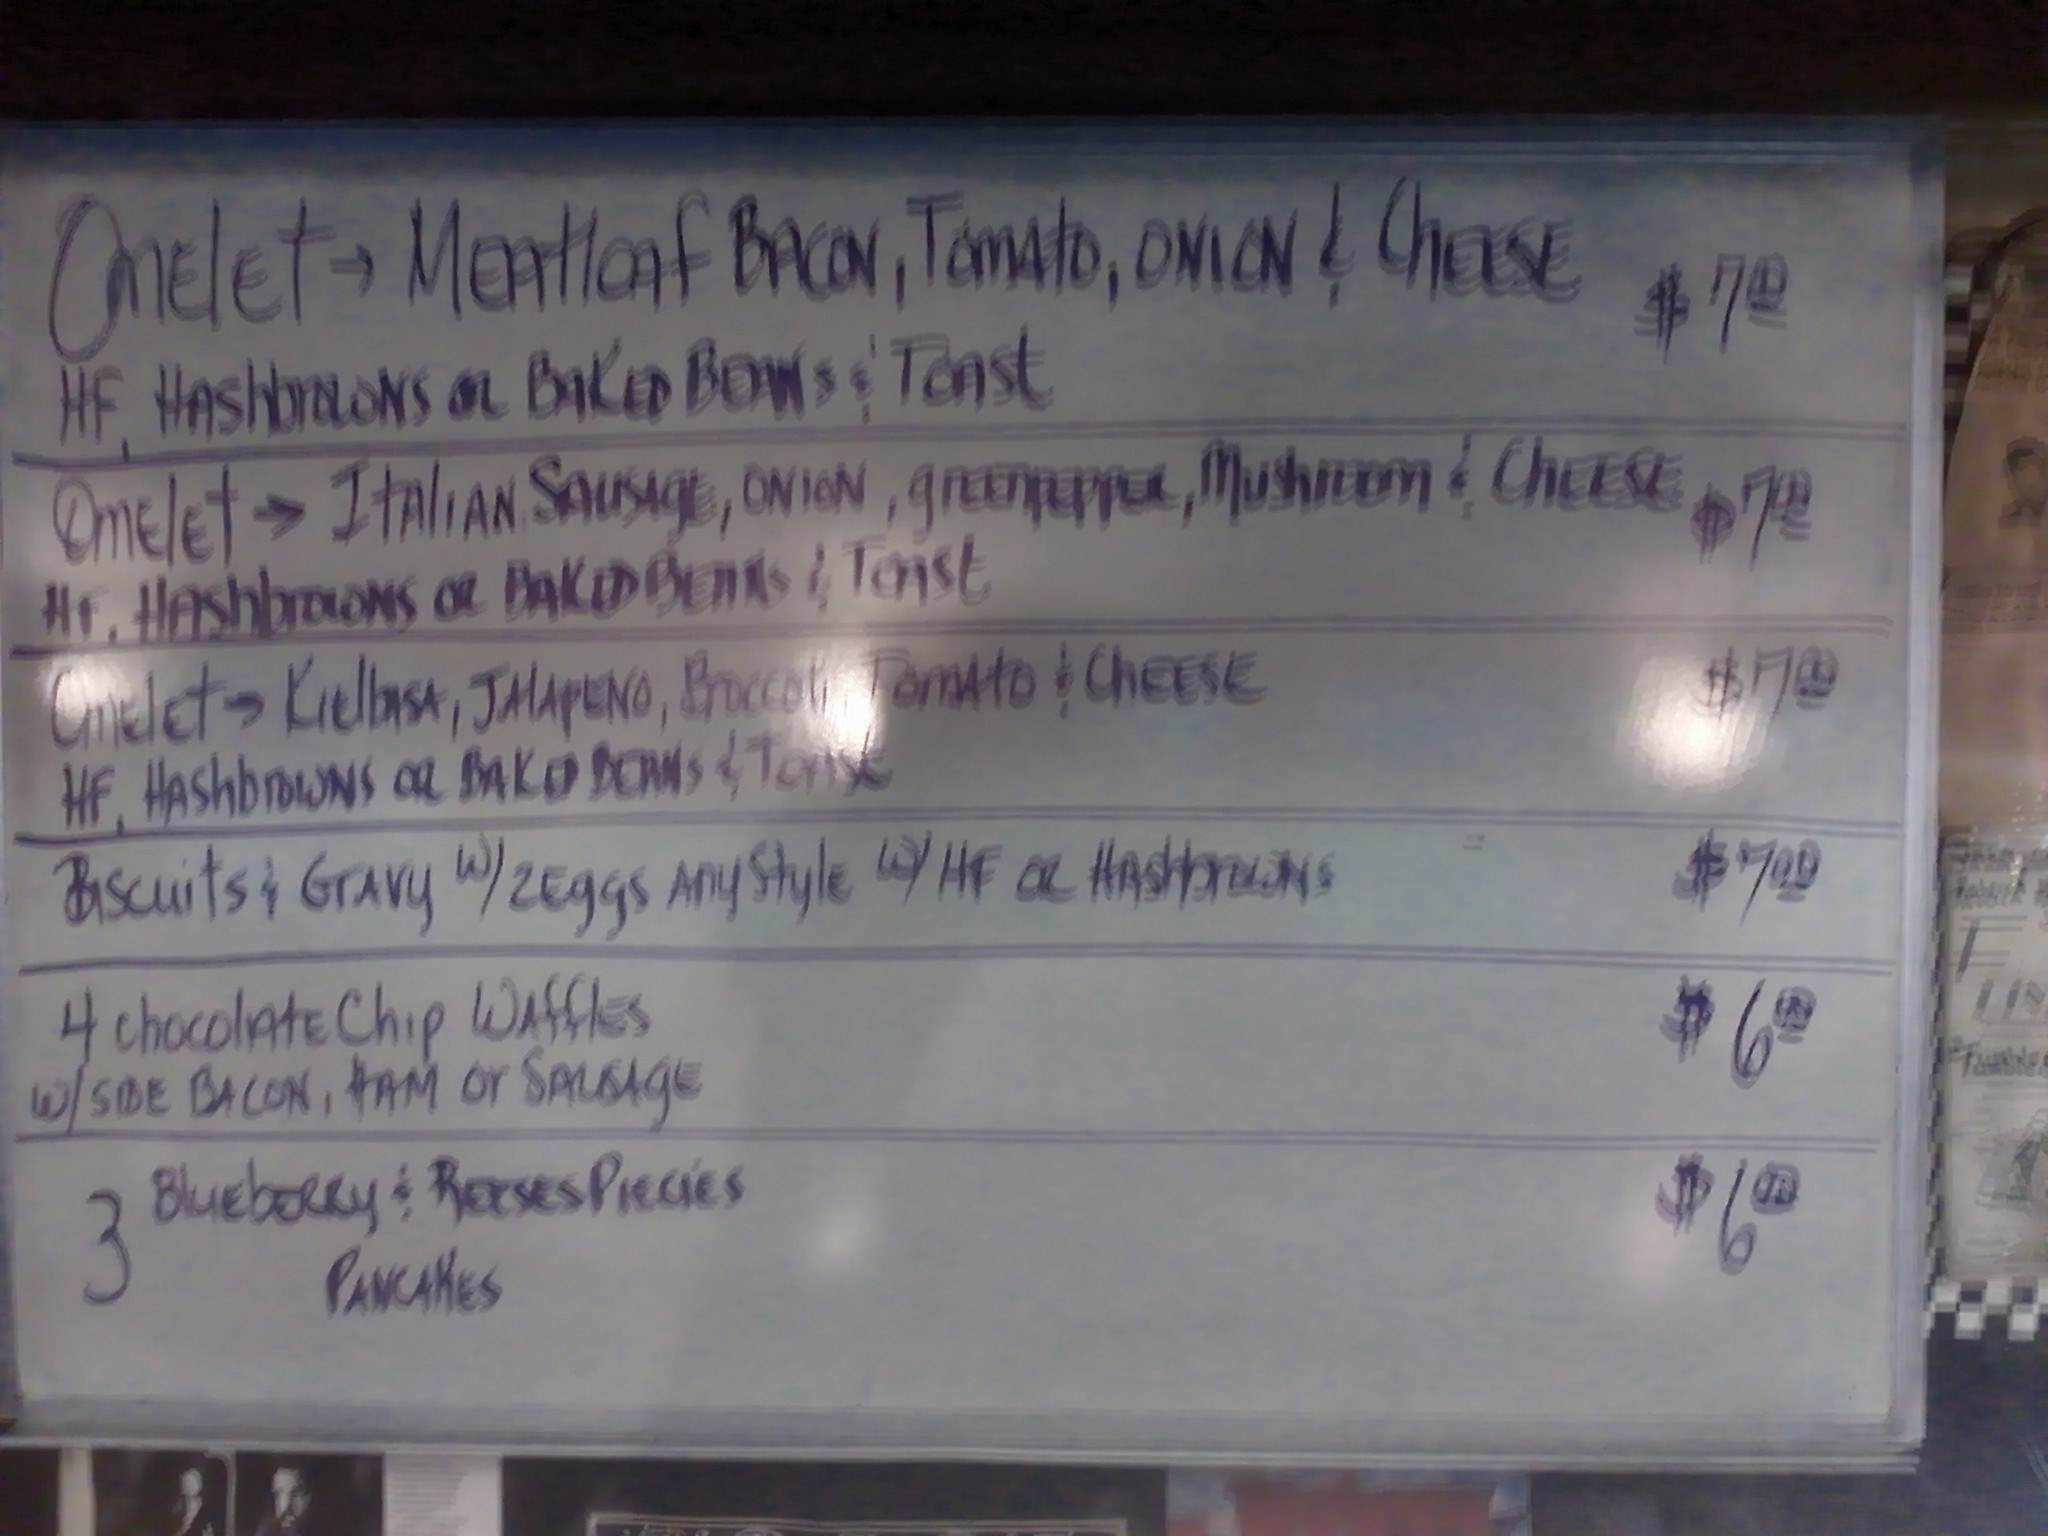 Omelet → Meatloaf Bacon, Tomato, Onion & Cheese $7.00
HF, Hashbrowns or Baked Beans & Toast
Omelet → Italian Sausage, Onion, greenpepper, Mushroom & Cheese $7.00
HF, Hashbrowns or Baked Beans & Toast
Omelet → Kielbasa, Jalapeno, Broccoli, Tomato & Cheese $7.00
HF, Hashbrowns or Baked Beans & Toast
Biscuits & Gravy w/ 2 Eggs Any Style w/ HF or Hashbrowns $7.00
4 Chocolate Chip Waffles $6.00
w/ Side Bacon, Ham or Sausage
3 Blueberry & Reeses Piecies $6.00
Pancakes